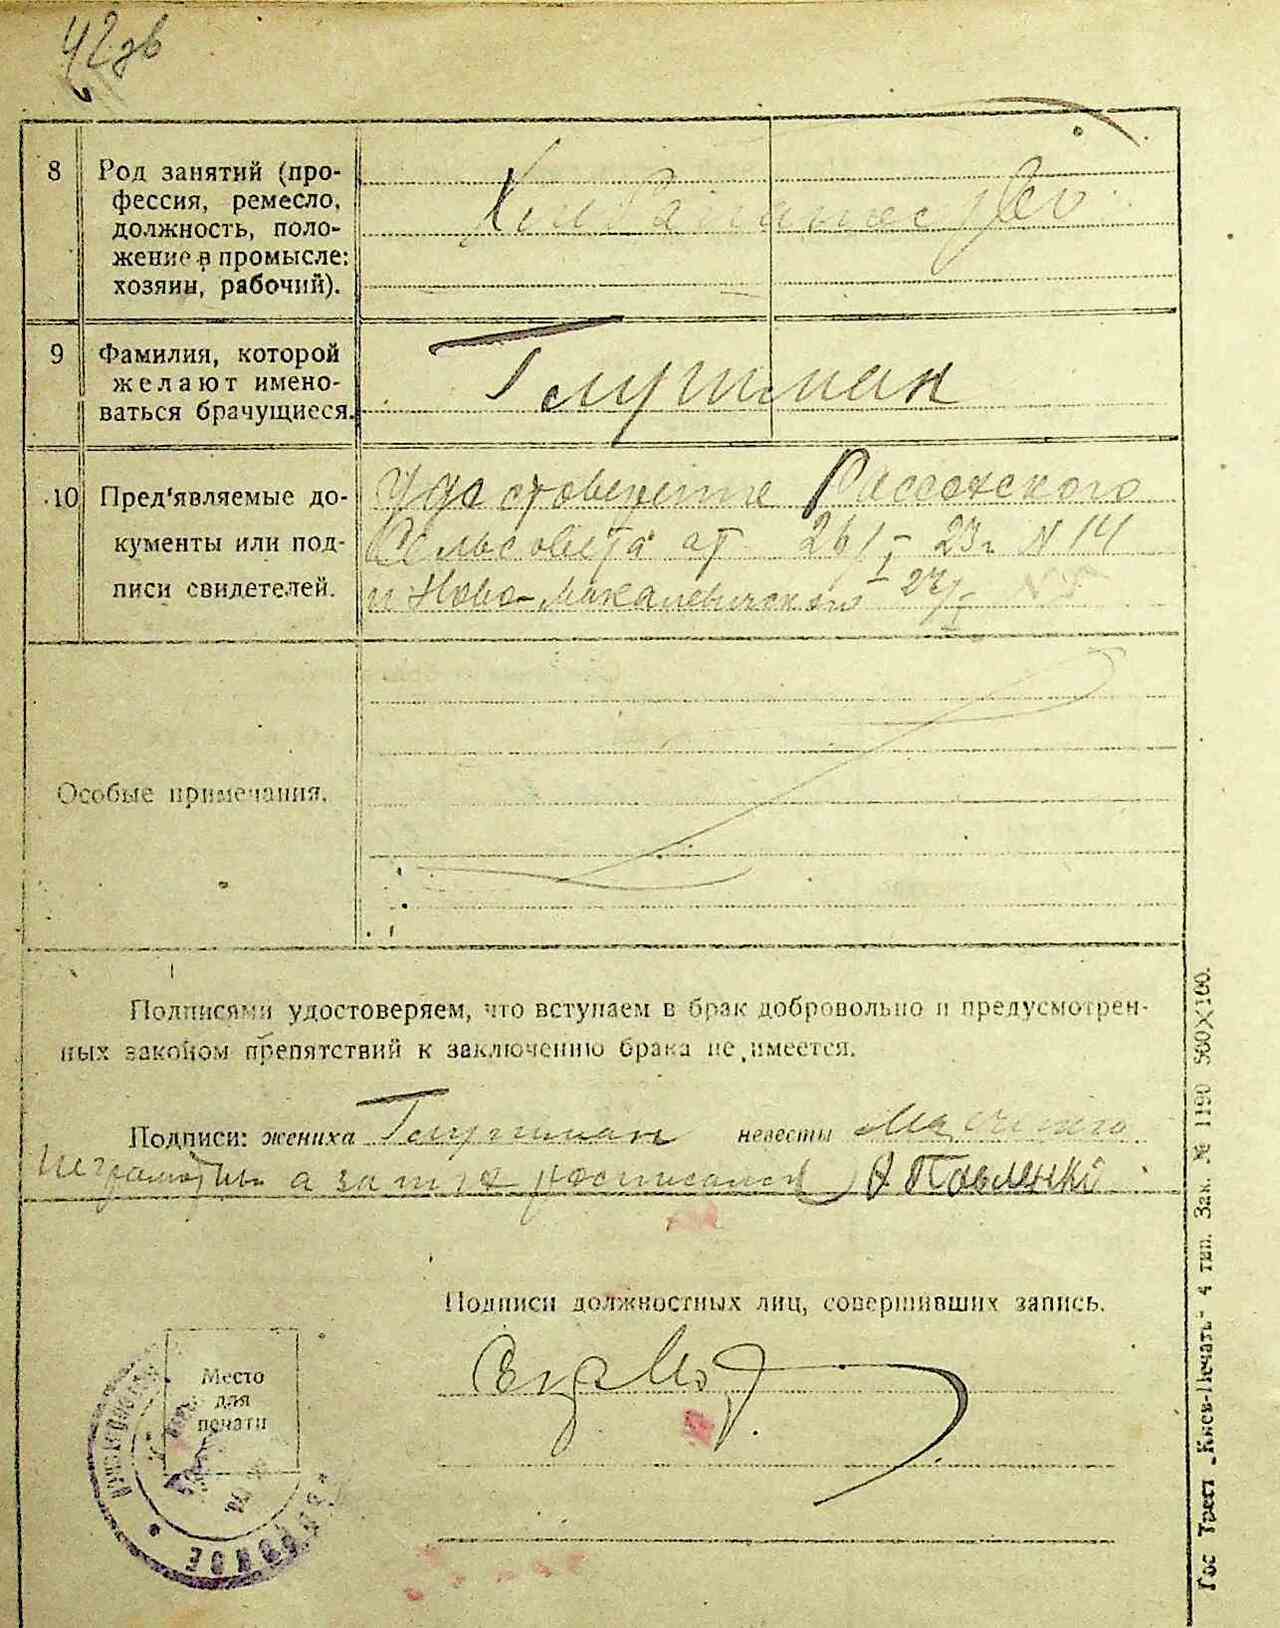 42 зв
8 Род занятий (про-
фессия, ремесло,
должность, поло-
жение в промысле:
хозяин, рабочий).
9 Фамилия, которой
желают имено-
ваться брачущиеся.
Глушман
10 Пред'являемые до-
кументы или под-
писи свидетелей.
Удостоверение Рассохского
Сельсовета от 26/I - 23 г. N 14
и Ново-Макалевичского 27/I
Особые примечания.
Подписями удостоверяем, что вступаем в брак добровольно и предусмотрен-
ных законом препятствий к заключению брака не имеется.
Подписи: жениха Глушман невесты
неграмотны а за них росписался А Павленко
Подписи должностных лиц, совершивших запись.
Место
для
печати
Гос Трест „Киев-Печать" 4 тип. Зак. № 1190 500X100.